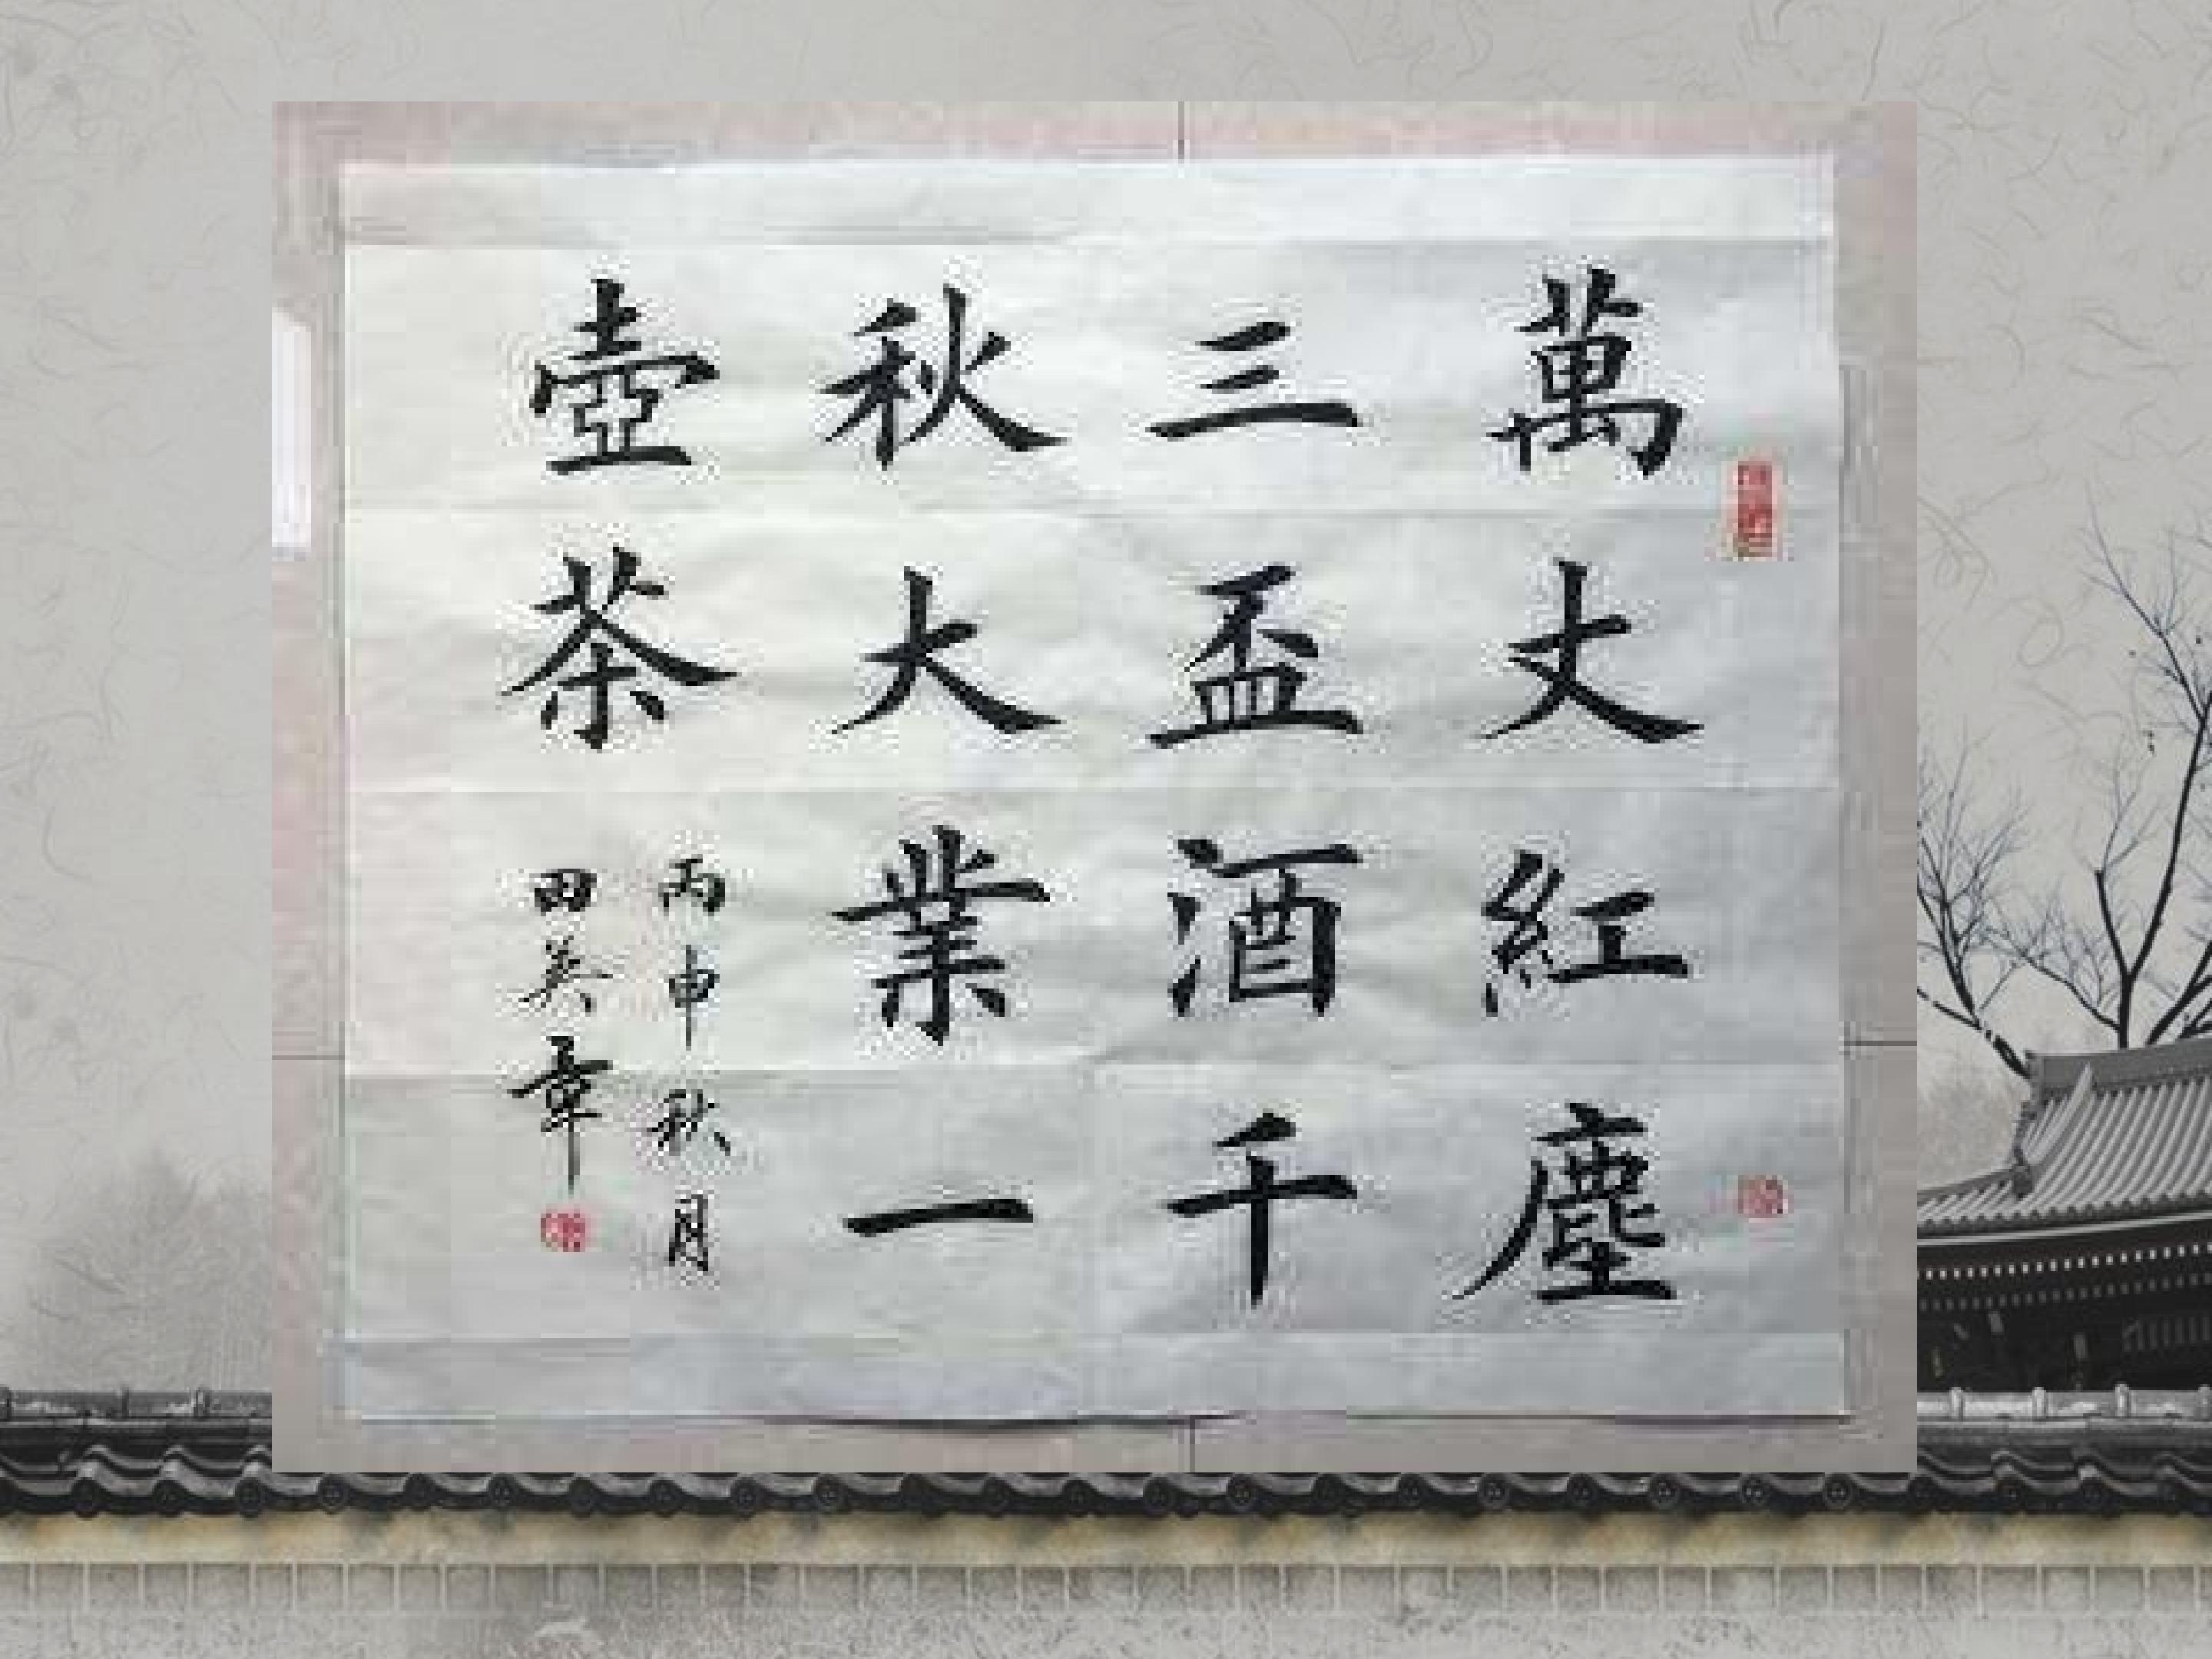 萬丈紅塵
三盃酒千
秋大業一
壺茶
丙申秋月
田英章